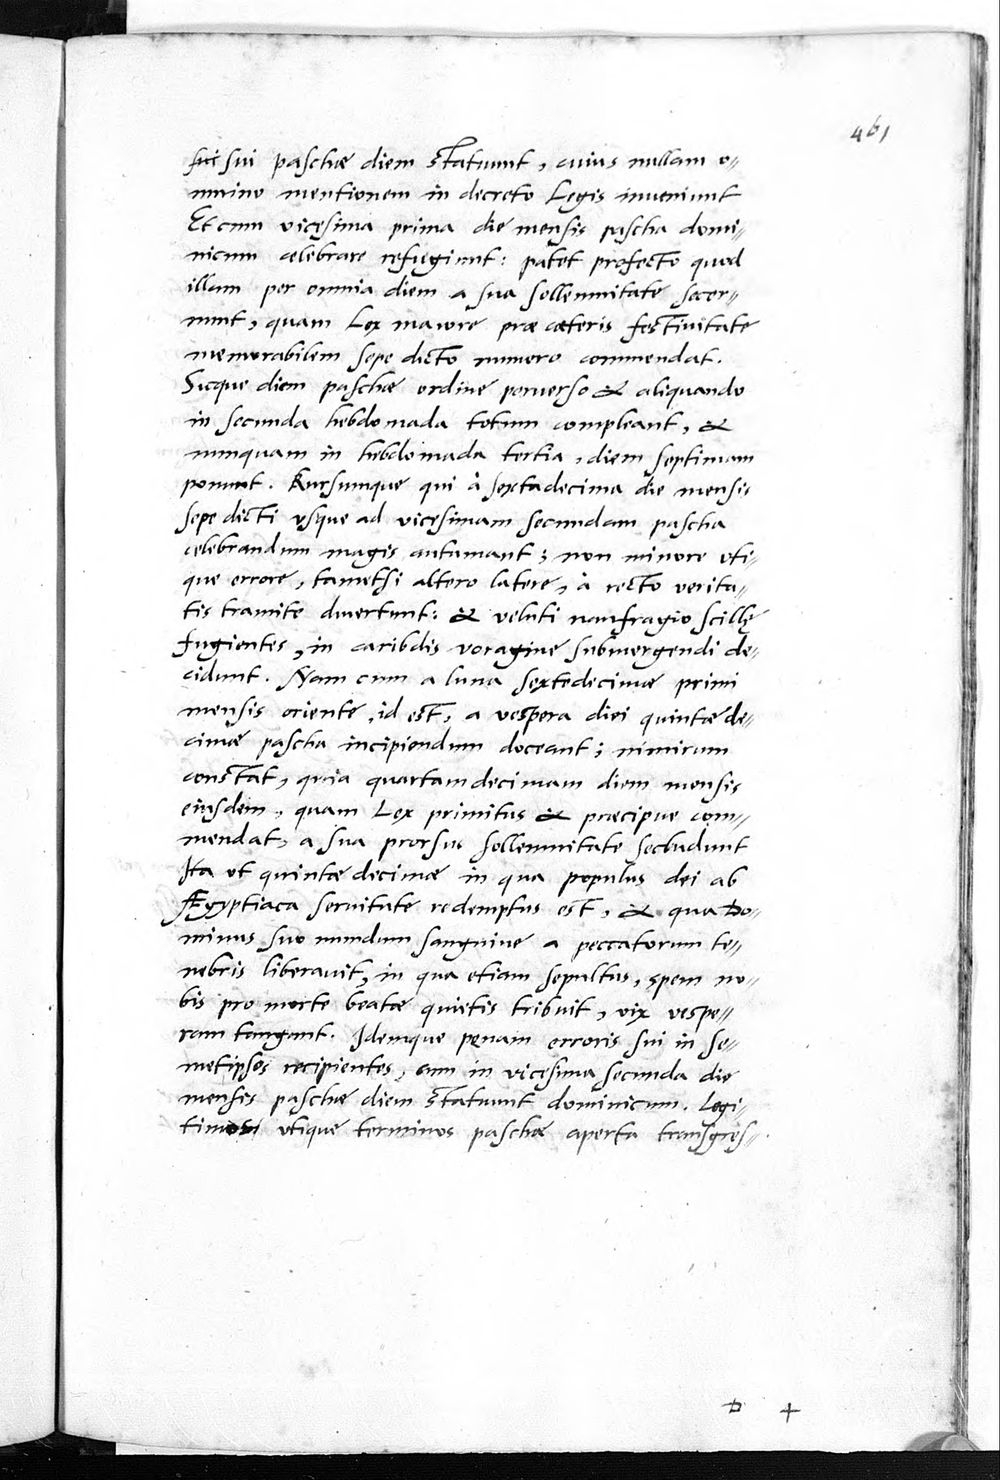 461
sui sui paschæ diem statuunt, cuius nullam o=
mnino mentionem in decreto Legis inveniunt
Et cum vicęsima prima die mensis pascha domi=
nicum celebrare refugiunt: patet profecto quod
illam per omnia diem a sua sollemnitate secer=
nunt, quam Lex maiore præ cæteris festivitate
memorabilem sępe dicto numero commendat.
Sicque diem paschæ ordine perverso & aliquando
in secunda hebdomada totum compleant, &
nunquam in hebdomada tertia, diem septimam
ponunt. Rursumque qui à sextadecima die mensis
sępe dicti usque ad vicęsimam secundam pascha
celebrandum magis autumant; non minore uti=
que errore, tametsi altero latere, à recto verita=
tis tramite divertunt: & veluti naufragio scillę
fugientes, in caribdis voragine submergendi de=
cidunt. Nam cum a luna sextedecimæ primi
mensis oriente, id est, a vespera diei quintæ de=
cimæ pascha incipiendum doceant; nimirum
constat, quia quartamdecimam diem mensis
eiusdem, quam Lex primitus & præcipue com=
mendat, a sua prorsus sollemnitate secludunt
Ita ut quintæ decimæ in qua populus dei ab
Ægyptiaca servitute redemptus est, & qua Do=
minus suo mundum sanguine a peccatorum te=
nebris liberavit, in qua etiam sepultus, spem no=
bis pro morte beatæ quietis tribuit, vix vespe=
ram tangant. Idemque pęnam erroris sui in se=
metipsos recipientes, cum in vicęsima secunda die
mensis paschæ diem statuunt dominicum. Legi=
timos utique terminos paschæ aperta transgres=
D +